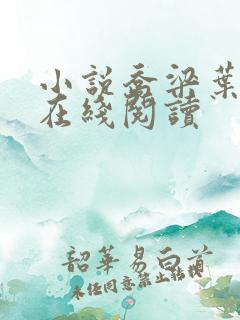 小説喬梁葉
在綫閱讀
韶華易白首
未經同意禁止轉載